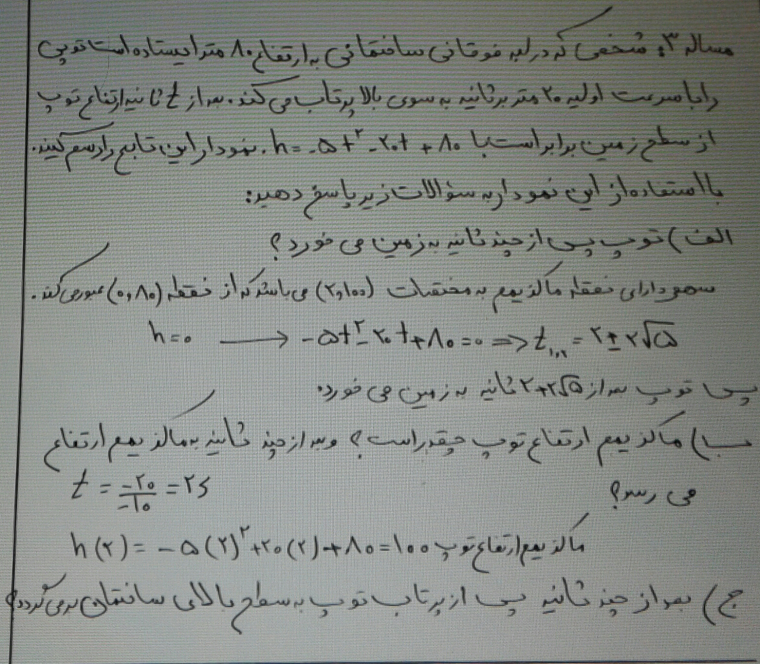 مساله ۳: شخصی که در لبه فوقانی ساختمانی به ارتفاع ۸۰ متر ایستاده است توپی
را با سرعت اولیه ۲۰ متر بر ثانیه به سوی بالا پرتاب می کند. بعد از t ثانیه ارتفاع توپ
از سطح زمین برابر است با h = -۵t² - ۲۰t + ۸۰. نمودار این تابع را رسم کنید.
با استفاده از این نمودار به سؤالات زیر پاسخ دهید:
الف) توپ پس از چند ثانیه به زمین می خورد؟
سهمی دارای نقطه ماکزیمم به مختصات (۲,۱۰۰) می باشد که از نقطه (۰,۸۰) عبور می کند.
h=۰ → -۵t² - ۲۰t + ۸۰ = ۰ => t₁,₂ = ۲ ± ۲√۵
پس توپ بعد از ۲+۲√۵ ثانیه به زمین می خورد.
ب) ماکزیمم ارتفاع توپ چقدر است؟ و بعد از چند ثانیه به ماکزیمم ارتفاع
می رسد؟ t = -۲۰/-۱۰ = ۲s
ماکزیمم ارتفاع توپ h(۲) = -۵(۲)² + ۲۰(۲) + ۸۰ = ۱۰۰
ج) بعد از چند ثانیه پس از پرتاب توپ به سطح بالای ساختمان بر می گردد؟